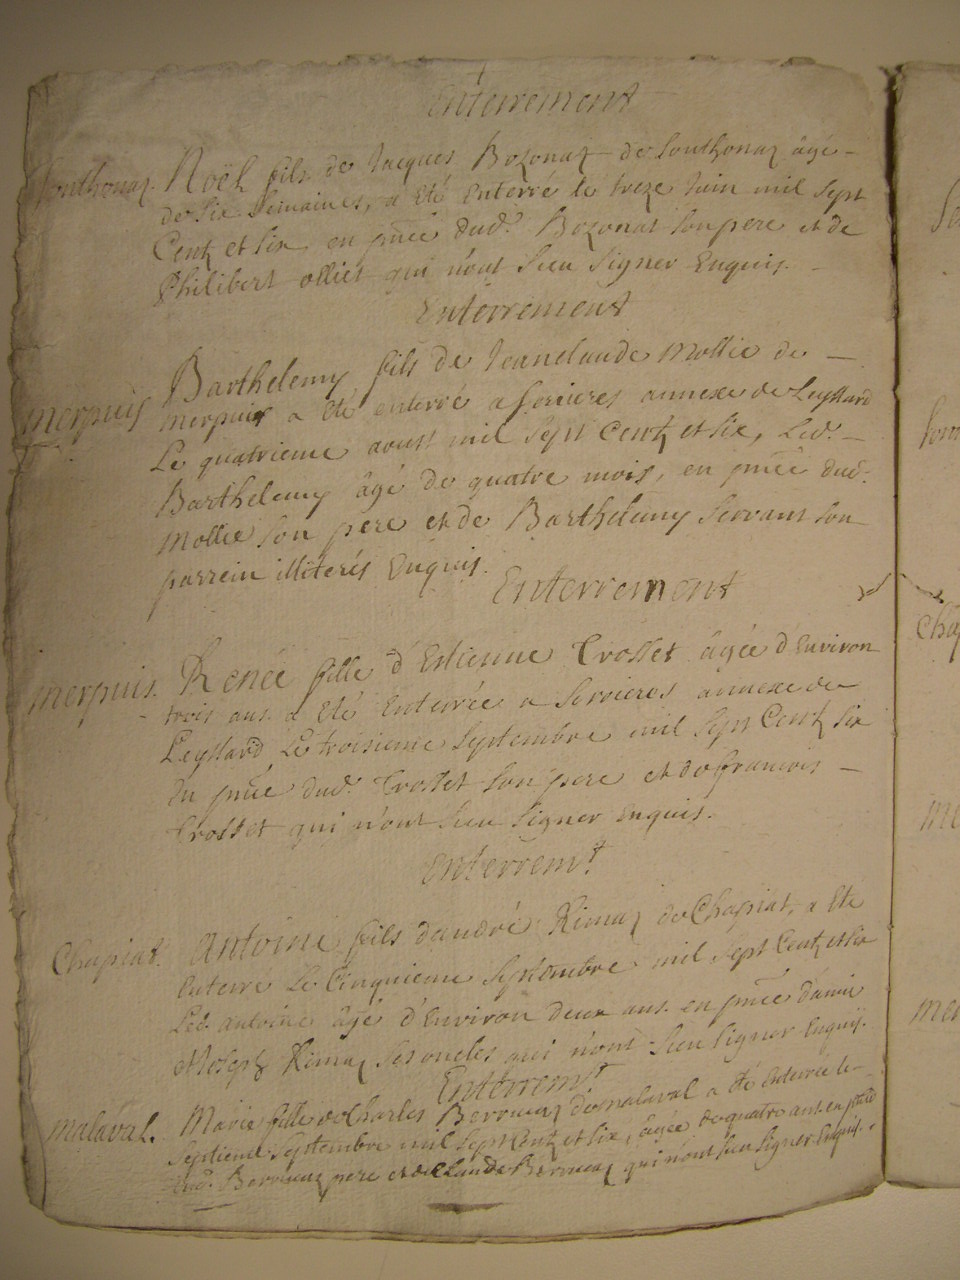 Enterrement
Southonaz. Noël fils de Jacques Bozonaz de Southonaz âgé
de six semaines, a été Enterré le treze Juin mil sept
Centz et six, en pñce dud.t Bozonat son pere et de
Philibert olliet qui n'ont sceu signer Enquis.
Enterrement
merpuis Barthelemy fils de Jeanclaude Mollie de
merpuis a été enterré a serrieres annexe de Leyssard
Le quatrieme aoust mil sept Centz et six, Led.
Barthelemy âgé de quatre mois, en pñce dud.
Mollie son pere et de Barthelemy servant son
parrein illiterés Enquis.
Enterrement
merpuis. Renée fille d'Estienne Crosset âgée d'Environ
trois ans a été Enterrée a serrieres annexe de
Leyssard Le troisieme septembre mil sept Centz six
En pñce dud. Crosset son pere et de francois
Crosset qui n'ont sceu signer enquis.
Enterrem.t
Chapiat. Antoine fils d'andré Rimaz de Chapiat, a Eté
Enterré Le Cinquieme Septembre mil sept Centz et six
Led. antoine âgé d'Environ deux ans. en pñce
et Joseph Rimaz ses oncles qui n'ont sceu signer Enquis.
Enterrem.t
malaval. Marie fille de Charles Berruaz de malaval a été Enterrée le
septieme septembre mil sept Centz et six, âgée de quatre ans. en pñce
dud. Berruaz pere et de Claude Berruaz qui n'ont sceu signer Enquis.